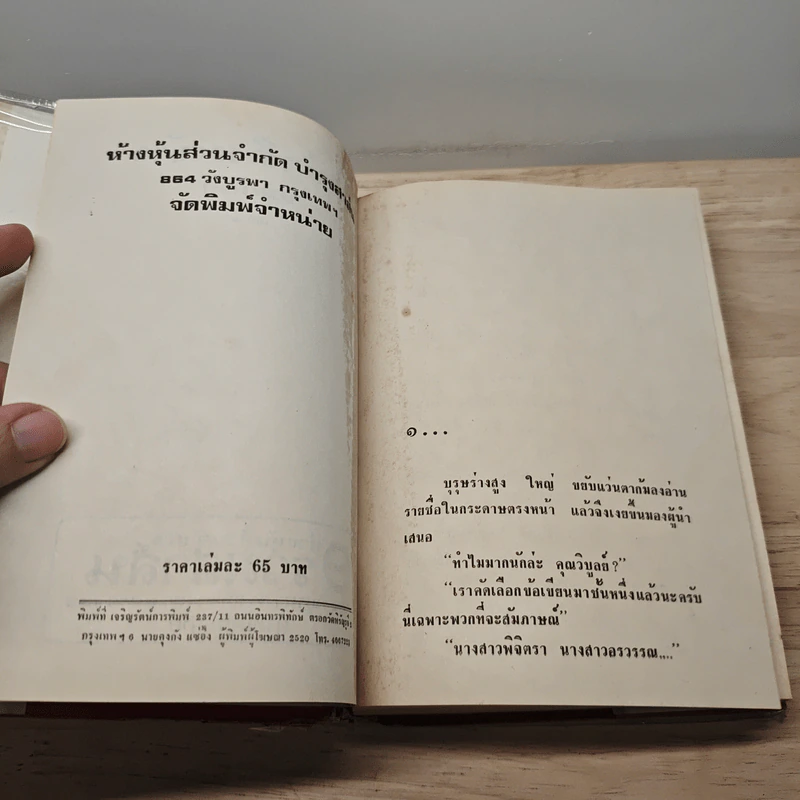 ห้างหุ้นส่วนจำกัด บำรุงสาส์น
864 วังบูรพา กรุงเทพฯ
จัดพิมพ์จำหน่าย
ราคาเล่มละ 65 บาท
พิมพ์ที่ เจริญรัตน์การพิมพ์ 237/11 ถนนอินทรพิทักษ์ ตรอกวัดหิรัญรูจี
กรุงเทพฯ 6 นายคุงกัง แซ่อึ้ง ผู้พิมพ์ผู้โฆษณา 2520 โทร.
๑...
บุรุษร่างสูง ใหญ่ ขยับแว่นตาก้มลงอ่าน
รายชื่อในกระดาษตรงหน้า แล้วจึงเงยขึ้นมองผู้นำ
เสนอ
“ทำไมมากนักล่ะ คุณวิบูลย์?”
“เราคัดเลือกข้อเขียนมาชั้นหนึ่งแล้วนะครับ
นี่เฉพาะพวกที่จะสัมภาษณ์”
“นางสาวพิจิตรา นางสาวอรวรรณ....”